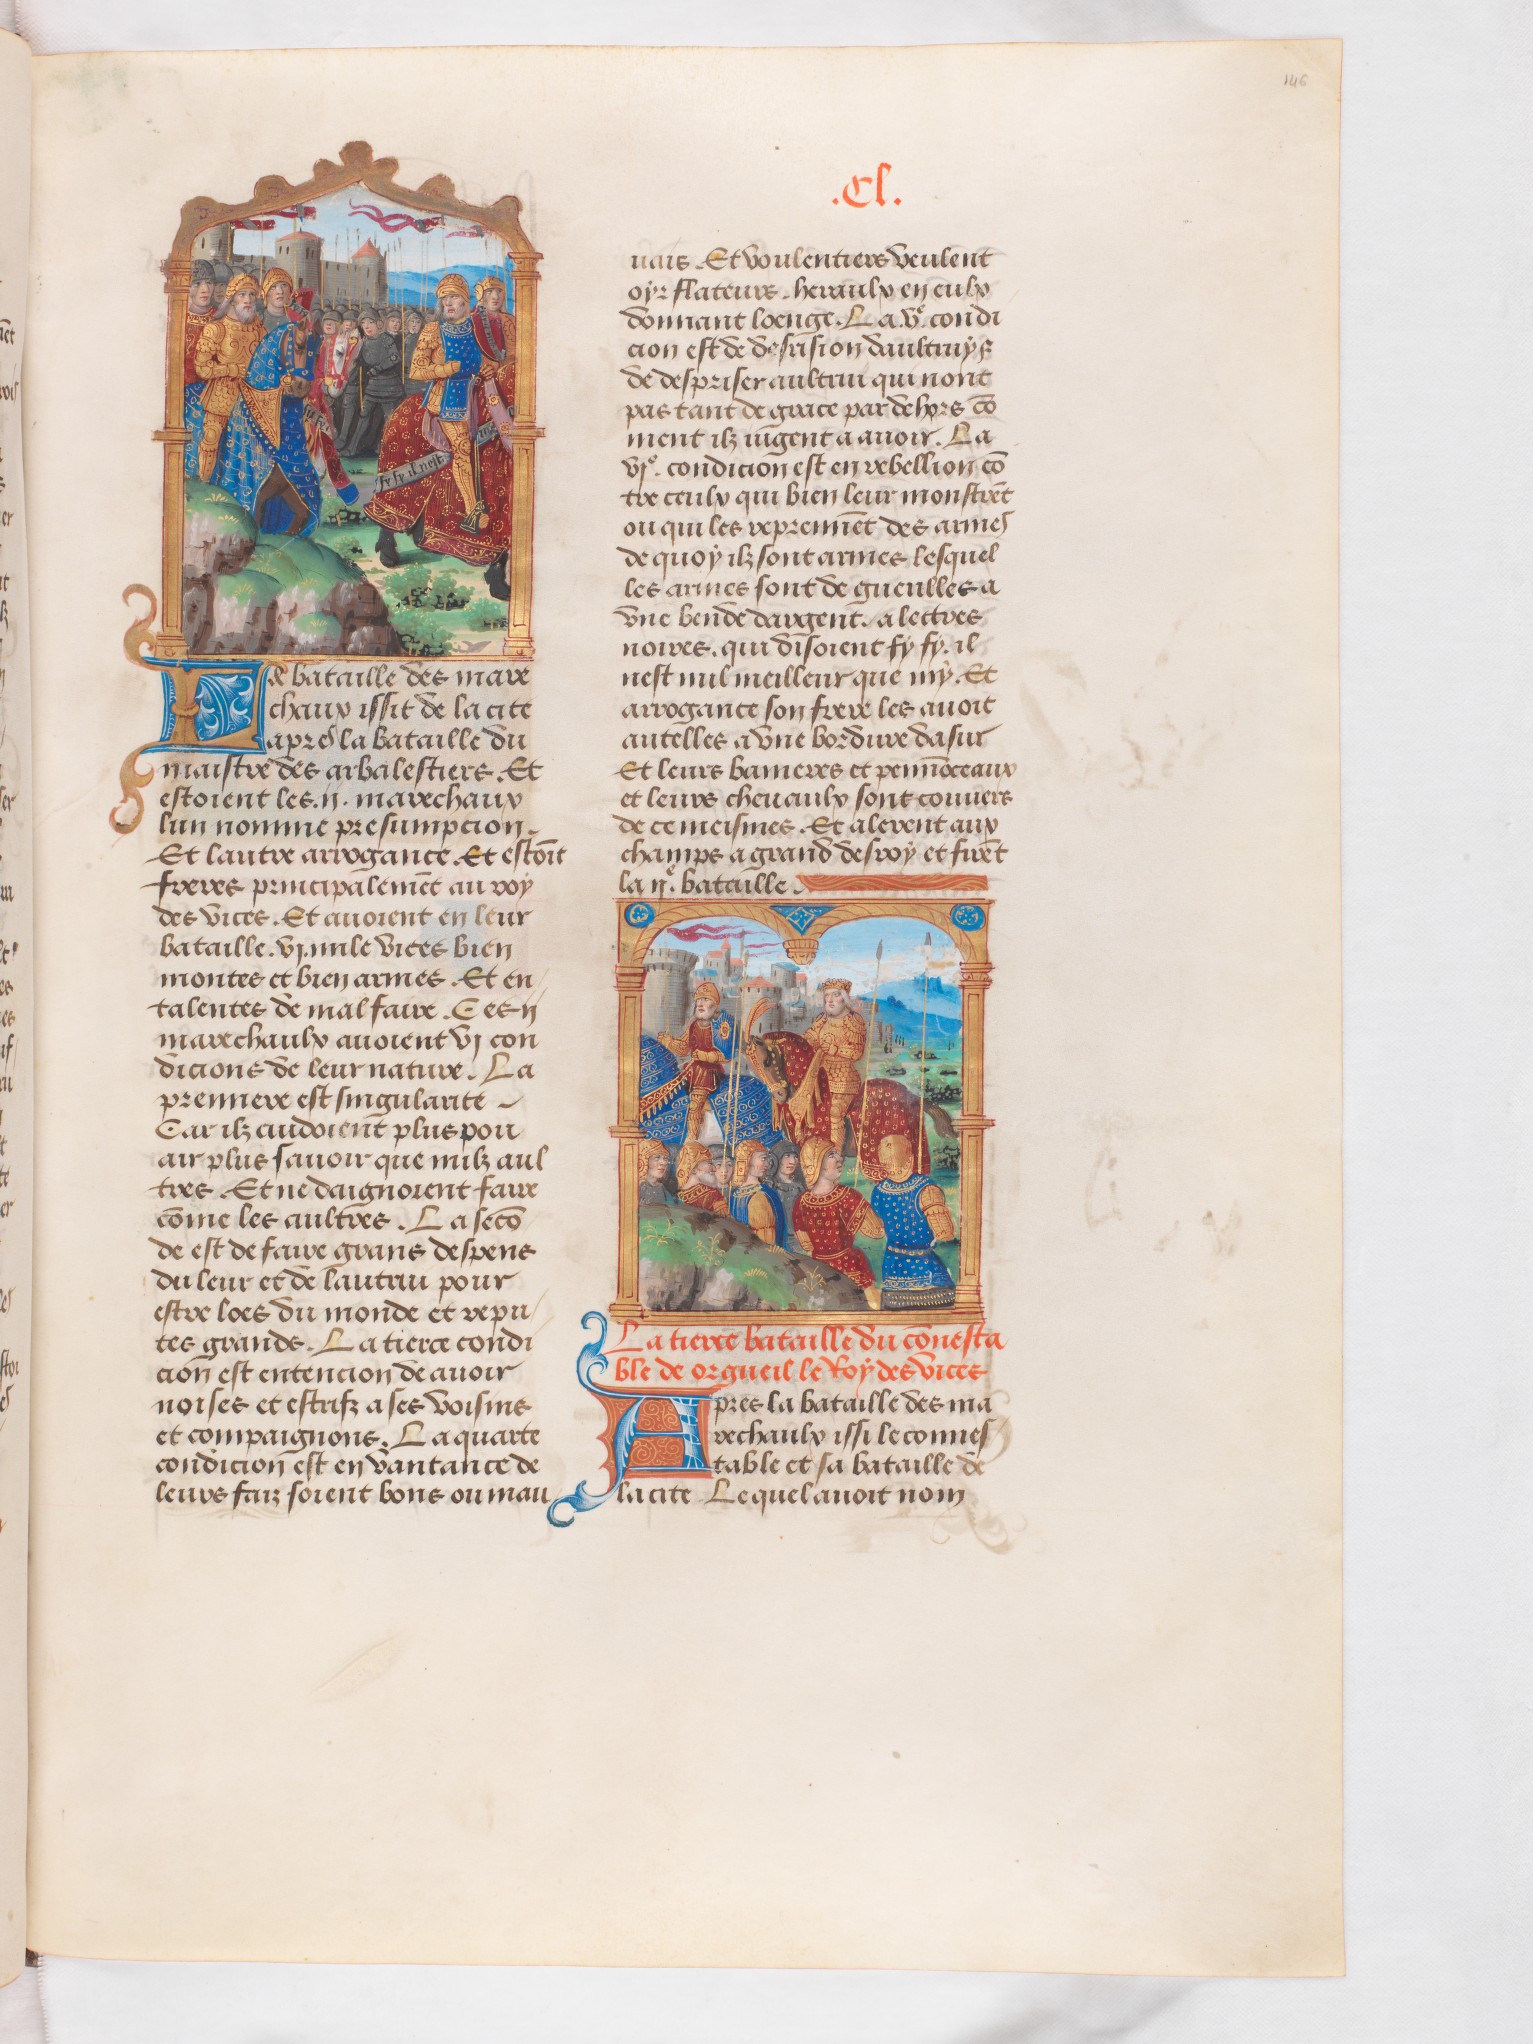 146
.Cl.
fy fy il nest
La bataille des mare
chaux issit de la cite
apres la bataille du
maistre des arbalestiers. Et
estoient les .ii. marechaux
lun nomme presumpcion.
Et lautre arrogance. Et estoīt
freres principalemēt au roy
des vices. Et avoient en leur
bataille .vi. mile vices bien
montes et bien armes. Et en
talentes de mal faire. Ces ii
marechaulx avoient vi con
dicions de leur nature. La
premiere est singularite
Car ilz cudoient plus pou
air plus savoir que nulz aul
tres. Et ne daignorent faire
cōme les aultres. La secō
de est de faire grans despens
du leur et de lautrui pour
estre loes du monde et repu
tes grands. La tierce condi
cion est entencion de avoir
noises et estrifz a ses voisins
et compaignons. La quarte
condicion est en vantance de
leurs faiz soient bons ou mau
uais. Et voulentiers veulent
oyr flateurs. heraulx en eulx
donnant loenge. La v.e condi
cion est de derision daultruy &
de despriser aultrui qui nont
pas tant de grace par dehors cō
ment ilz iugent a avoir. La
vi.e condicion est en rebellion cō
tre ceulx qui bien leur monstrēt
ou qui les reprennēt des armes
de quoy ilz sont armes lesquel
les armes sont de gueulles a
vne bende dargent. a lectres
noires. qui disoient fy fy. il
nest nul meilleur que my. Et
arrogance son frere les avoit
autelles a vne bordure dasur
Et leurs banieres et pennōceaux
et leurs chevaulx sont couuers
de ce meismes. Et alerent aux
champs a grand desroy et firēt
la ii.e bataille.
La tierce bataille du cōnesta
ble de orgueil le Roy des vices
Apres la bataille des ma
rechaulx issi le connes
table et sa bataille de
la cite Lequel avoit nom